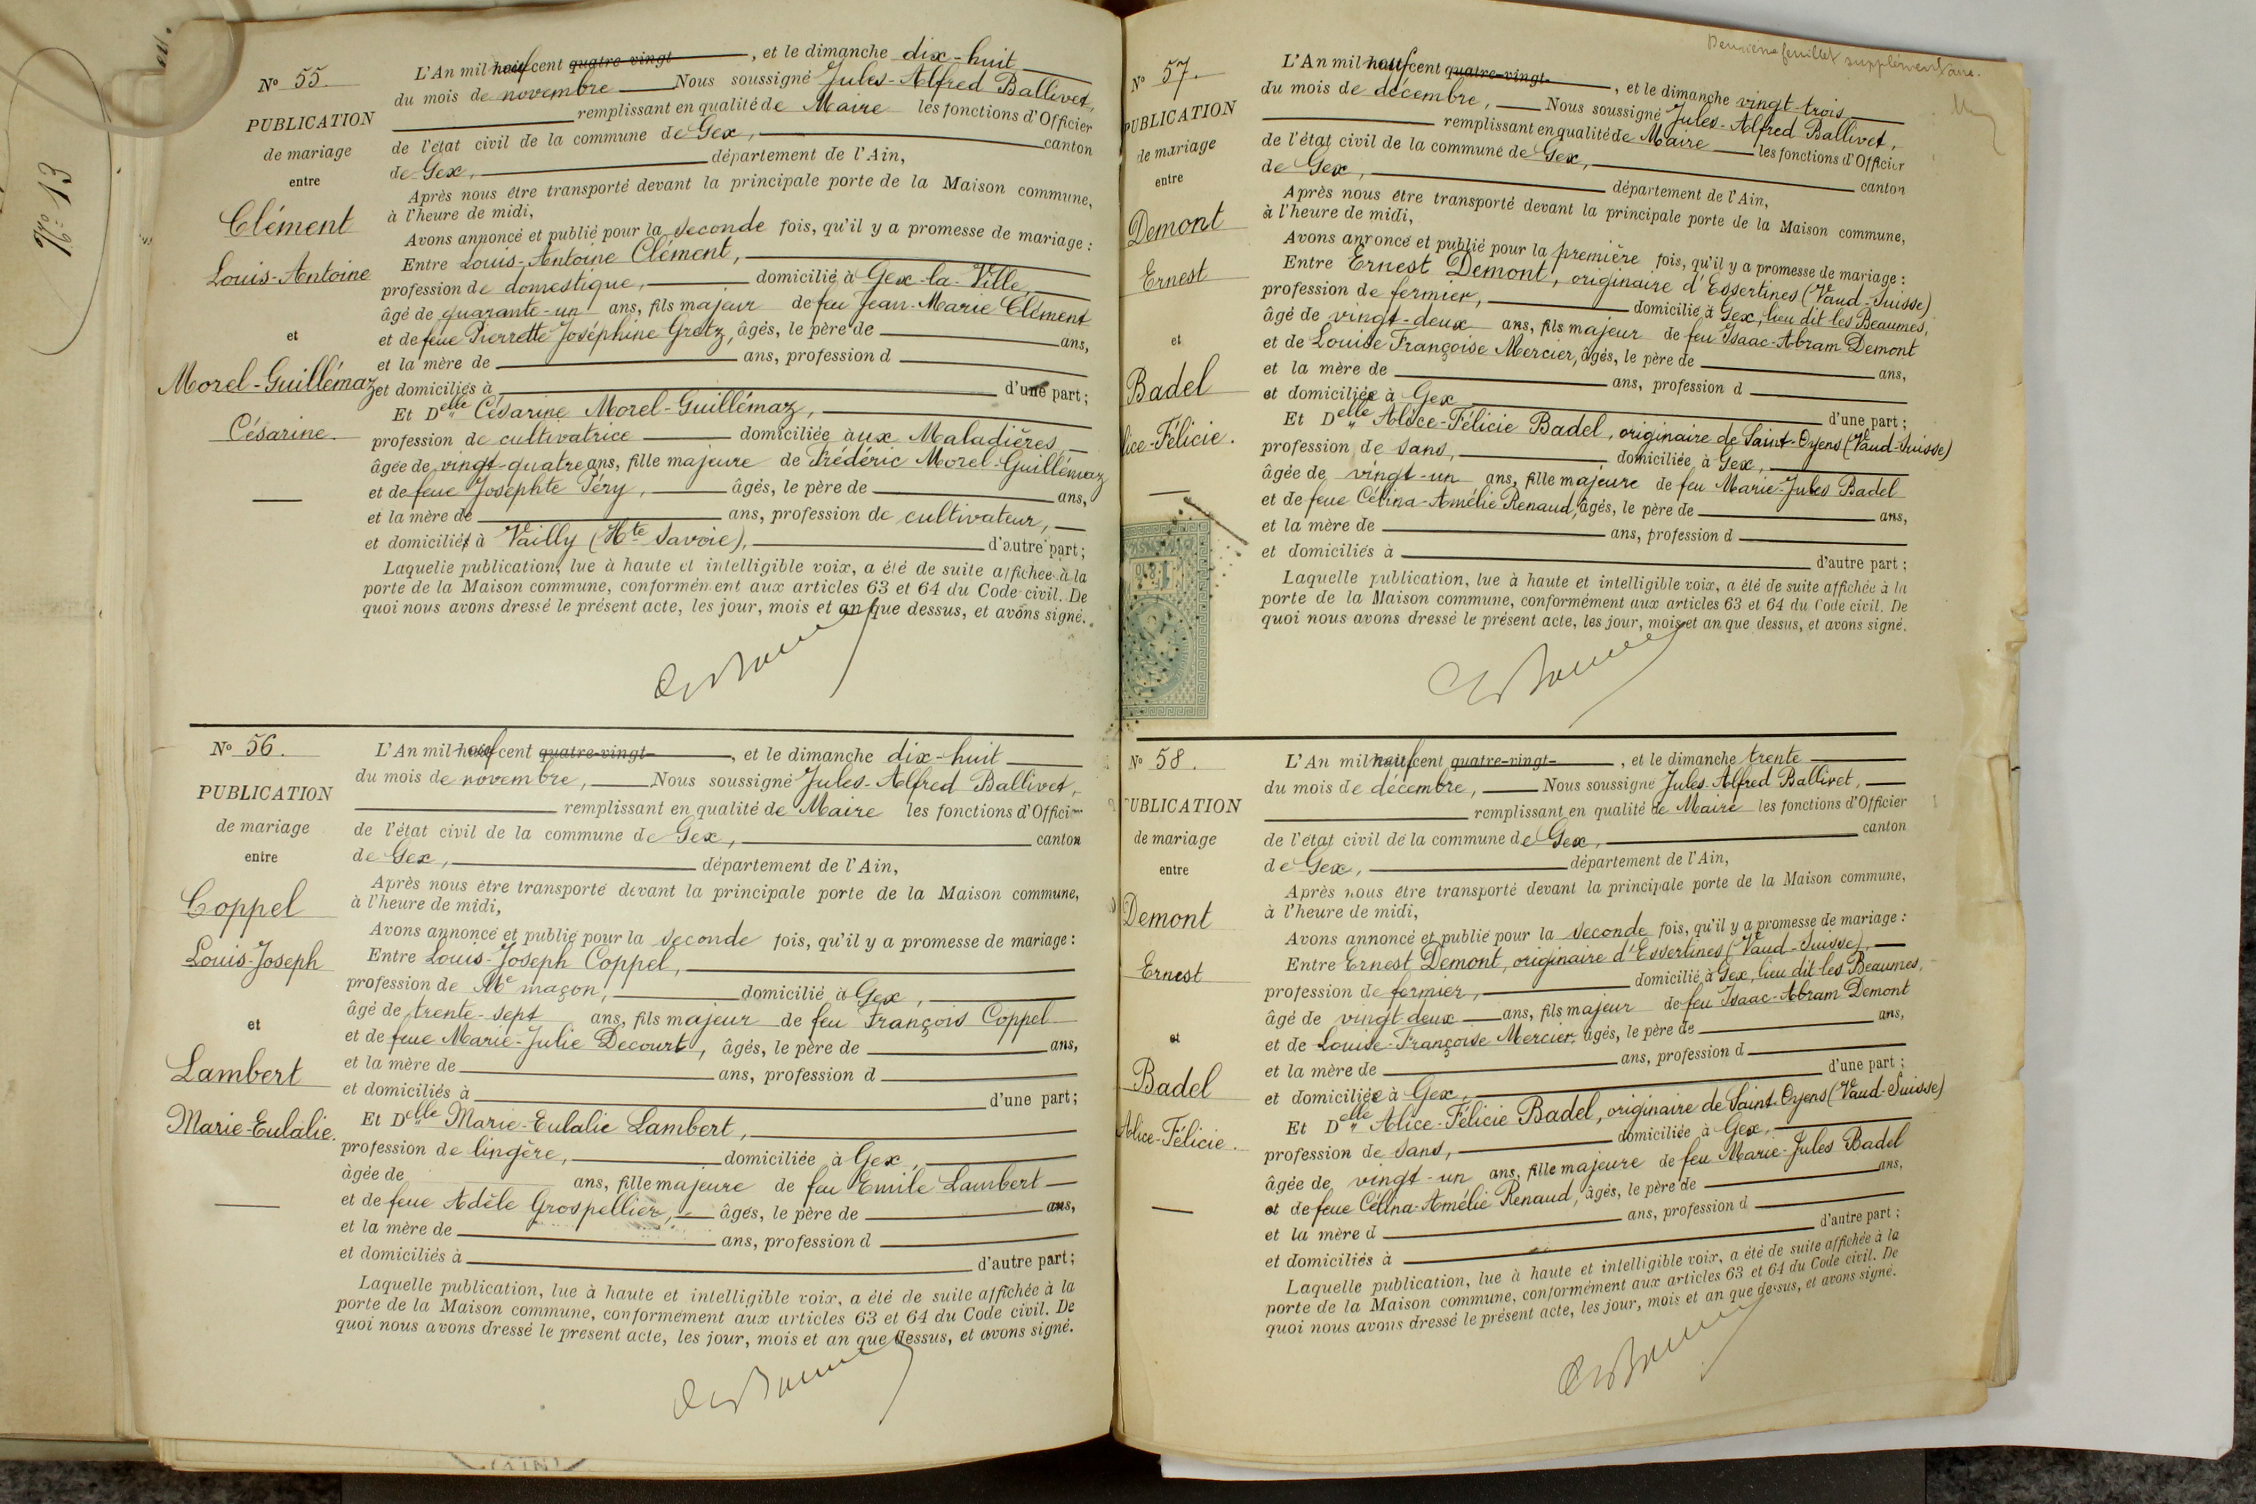 N° 13
N° 55.
PUBLICATION
de mariage
entre
Clément
Louis-Antoine
et
Morel-Guillémaz
Césarine.
L'An mil neuf cent quatre-vingt, et le dimanche dix-huit
du mois de novembre Nous soussigné Jules-Alfred Ballivet,
remplissant en qualité de Maire les fonctions d'Officier
de l'état civil de la commune de Gex, canton
de Gex, département de l'Ain,
Après nous être transporté devant la principale porte de la Maison commune,
à l'heure de midi,
Avons annoncé et publié pour la seconde fois, qu'il y a promesse de mariage :
Entre Louis-Antoine Clément,
profession de domestique, domicilié à Gex-la-Ville,
âgé de quarante-un ans, fils majeur de feu Jean-Marie Clément
et de feue Pierrette Joséphine Gretz, âgés, le père de ans,
et la mère de ans, profession d
et domiciliés à d'une part ;
Et Delle Césarine Morel-Guillémaz,
profession de cultivatrice domiciliée aux Maladières
âgée de vingt-quatre ans, fille majeure de Frédéric Morel-Guillémaz
et de feue Josephte Péry, âgés, le père de ans,
et la mère de ans, profession de cultivateur,
et domiciliés à Vailly (Hte Savoie), d'autre part ;
Laquelle publication, lue à haute et intelligible voix, a été de suite affichée à la
porte de la Maison commune, conformément aux articles 63 et 64 du Code civil. De
quoi nous avons dressé le présent acte, les jour, mois et an que dessus, et avons signé.
N° 56.
PUBLICATION
de mariage
entre
Coppel
Louis-Joseph
et
Lambert
Marie-Eulalie.
L'An mil neuf cent quatre-vingt, et le dimanche dix-huit
du mois de novembre, Nous soussigné Jules-Alfred Ballivet,
remplissant en qualité de Maire les fonctions d'Officier
de l'état civil de la commune de Gex, canton
de Gex, département de l'Ain,
Après nous être transporté devant la principale porte de la Maison commune,
à l'heure de midi,
Avons annoncé et publié pour la seconde fois, qu'il y a promesse de mariage :
Entre Louis-Joseph Coppel,
profession de Me maçon, domicilié à Gex,
âgé de trente-sept ans, fils majeur de feu François Coppel
et de feue Marie-Julie Decourt, âgés, le père de ans,
et la mère de ans, profession d
et domiciliés à d'une part ;
Et Delle Marie-Eulalie Lambert,
profession de lingère, domiciliée à Gex,
âgée de ans, fille majeure de feu Emile Lambert
et de feue Adèle Grospellier, âgés, le père de ans,
et la mère de ans, profession d
et domiciliés à d'autre part ;
Laquelle publication, lue à haute et intelligible voix, a été de suite affichée à la
porte de la Maison commune, conformément aux articles 63 et 64 du Code civil. De
quoi nous avons dressé le présent acte, les jour, mois et an que dessus, et avons signé.
(AIN)
Deuxième feuillet supplémentaire.
N° 57.
PUBLICATION
de mariage
entre
Demont
Ernest
et
Badel
lice-Félicie.
L'An mil neuf cent quatre-vingt-, et le dimanche vingt-trois
du mois de décembre, Nous soussigné Jules-Alfred Ballivet,
remplissant en qualité de Maire les fonctions d'Officier
de l'état civil de la commune de Gex, canton
de Gex, département de l'Ain,
Après nous être transporté devant la principale porte de la Maison commune,
à l'heure de midi,
Avons annoncé et publié pour la première fois, qu'il y a promesse de mariage :
Entre Ernest Demont, originaire d'Essertines (Vaud-Suisse)
profession de fermier, domicilié à Gex, lieu dit les Beaumes,
âgé de vingt-deux ans, fils majeur de feu Isaac-Abram Demont
et de Louise Françoise Mercier, âgés, le père de ans,
et la mère de ans, profession d
et domiciliée à Gex d'une part ;
Et Delle Alice-Félicie Badel, originaire de Saint-Oyens (Vaud-Suisse)
profession de sans, domiciliée à Gex,
âgée de vingt-un ans, fille majeure de feu Marie-Jules Badel
et de feue Célina-Amélie Renaud, âgés, le père de ans,
et la mère de ans, profession d
et domiciliés à d'autre part ;
Laquelle publication, lue à haute et intelligible voix, a été de suite affichée à la
porte de la Maison commune, conformément aux articles 63 et 64 du Code civil. De
quoi nous avons dressé le présent acte, les jour, mois et an que dessus, et avons signé.
N° 58.
UBLICATION
de mariage
entre
Demont
Ernest
et
Badel
Alice-Félicie.
L'An mil neuf cent quatre-vingt-, et le dimanche trente
du mois de décembre, Nous soussigné Jules-Alfred Ballivet,
remplissant en qualité de Maire les fonctions d'Officier
de l'état civil de la commune de Gex, canton
de Gex, département de l'Ain,
Après nous être transporté devant la principale porte de la Maison commune,
à l'heure de midi,
Avons annoncé et publié pour la seconde fois, qu'il y a promesse de mariage :
Entre Ernest Demont, originaire d'Essertines (Vaud-Suisse),
profession de fermier, domicilié à Gex, lieu dit les Beaumes,
âgé de vingt-deux ans, fils majeur de feu Isaac-Abram Demont
et de Louise-Françoise Mercier, âgés, le père de ans,
et la mère de ans, profession d
et domiciliée à Gex, d'une part ;
Et Delle Alice-Félicie Badel, originaire de Saint-Oyens (Vaud-Suisse)
profession de sans, domiciliée à Gex,
âgée de vingt-un ans, fille majeure de feu Marie-Jules Badel
et de feue Célina-Amélie Renaud, âgés, le père de ans,
et la mère d ans, profession d
et domiciliés à d'autre part ;
Laquelle publication, lue à haute et intelligible voix, a été de suite affichée à la
porte de la Maison commune, conformément aux articles 63 et 64 du Code civil. De
quoi nous avons dressé le présent acte, les jour, mois et an que dessus, et avons signé.